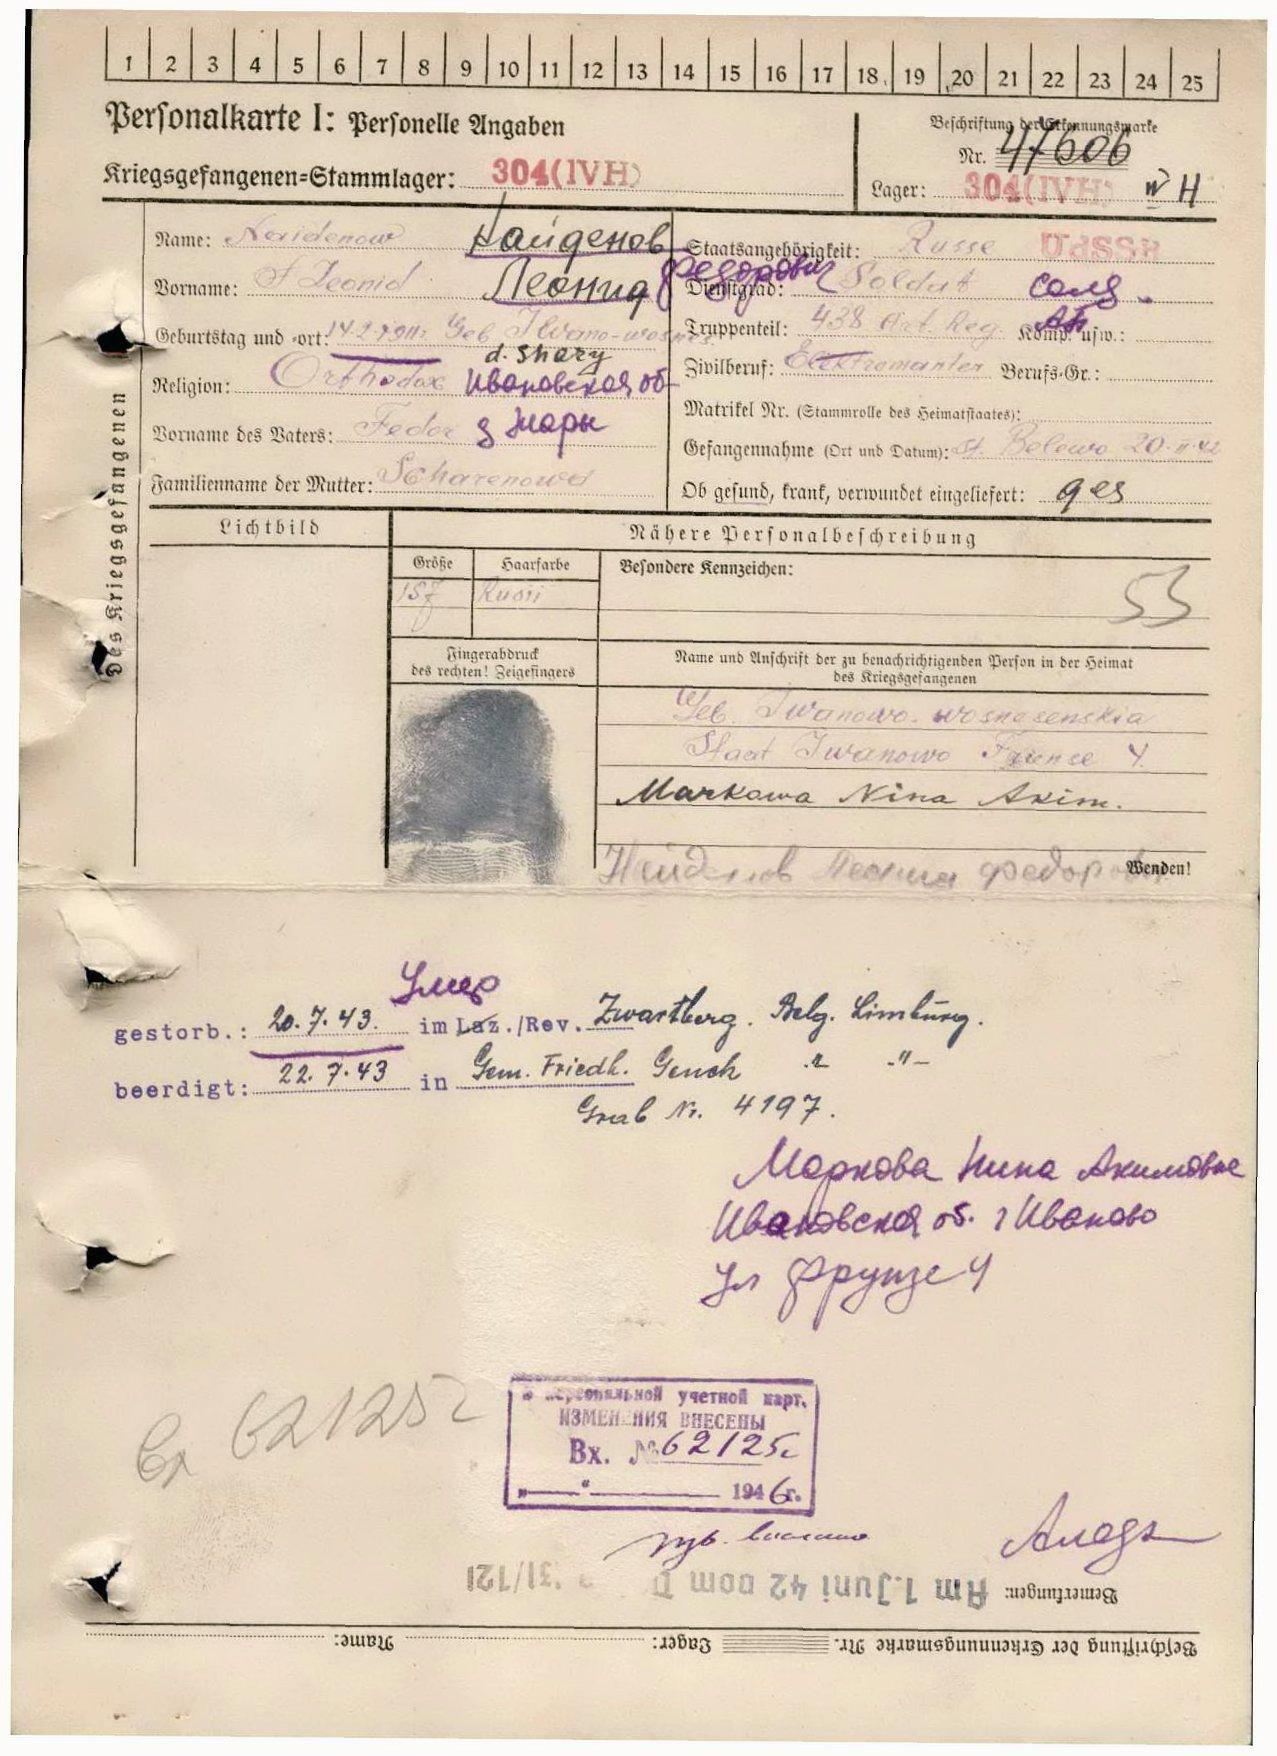 1 2 3 4 5 6 7 8 9 10 11 12 13 14 15 16 17 18 19 20 21 22 23 24 25
Personalkarte I: Personelle Angaben
Beschriftung der Erkennungsmarke
Nr. 47606
Kriegsgefangenen=Stammlager: 304(IVH)
Lager: 304(IVH) IV H
Des Kriegsgefangenen
Name: Naidenow Найденов
Vorname: Leonid Леонид Федорович
Geburtstag und -ort: Geb. Iwano-wosnes
d. Shary
Religion: Orthodox Ивановская об
Vorname des Vaters: Fedor д Жары
Familienname der Mutter: Scharenowa
Staatsangehörigkeit: Russe UdSSR
Dienstgrad: Soldat солд.
Truppenteil: 438 Art. Reg. Komp. usw.: АП
Zivilberuf: Elektromonter Berufs-Gr.:
Matrikel Nr. (Stammrolle des Heimatstaates):
Gefangennahme (Ort und Datum): St. Belewo 20.II.42
Ob gesund, krank, verwundet eingeliefert: ges
Lichtbild
Nähere Personalbeschreibung
Größe Haarfarbe Besondere Kennzeichen:
157 Rusii
53
Fingerabdruck
des rechten! Zeigefingers
Name und Anschrift der zu benachrichtigenden Person in der Heimat
des Kriegsgefangenen
Geb. Iwanowo-wosnesenskia
Staat Iwanowo Frunse 4
Markowa Nina Akim.
Найденов Леонид Федорович
Wenden!
Умер
gestorb.: 20.7.43. im Laz./Rev. Zwartberg. Belg. Limburg.
beerdigt: 22.7.43 in Gem. Friedh. Genck " -"-
Grab Nr. 4197.
Маркова Нина Акимовна
Ивановская об. г Иваново
ул Фрунзе 4
Вх 62125с
В персональной учетной карт.
ИЗМЕНЕНИЯ ВНЕСЕНЫ
Вх. № 62125с
„ “ 1946г.
Bemerkungen: Am 1. Juni 42 vom 31/121
Beschriftung der Erkennungsmarke Nr. Lager: Name: